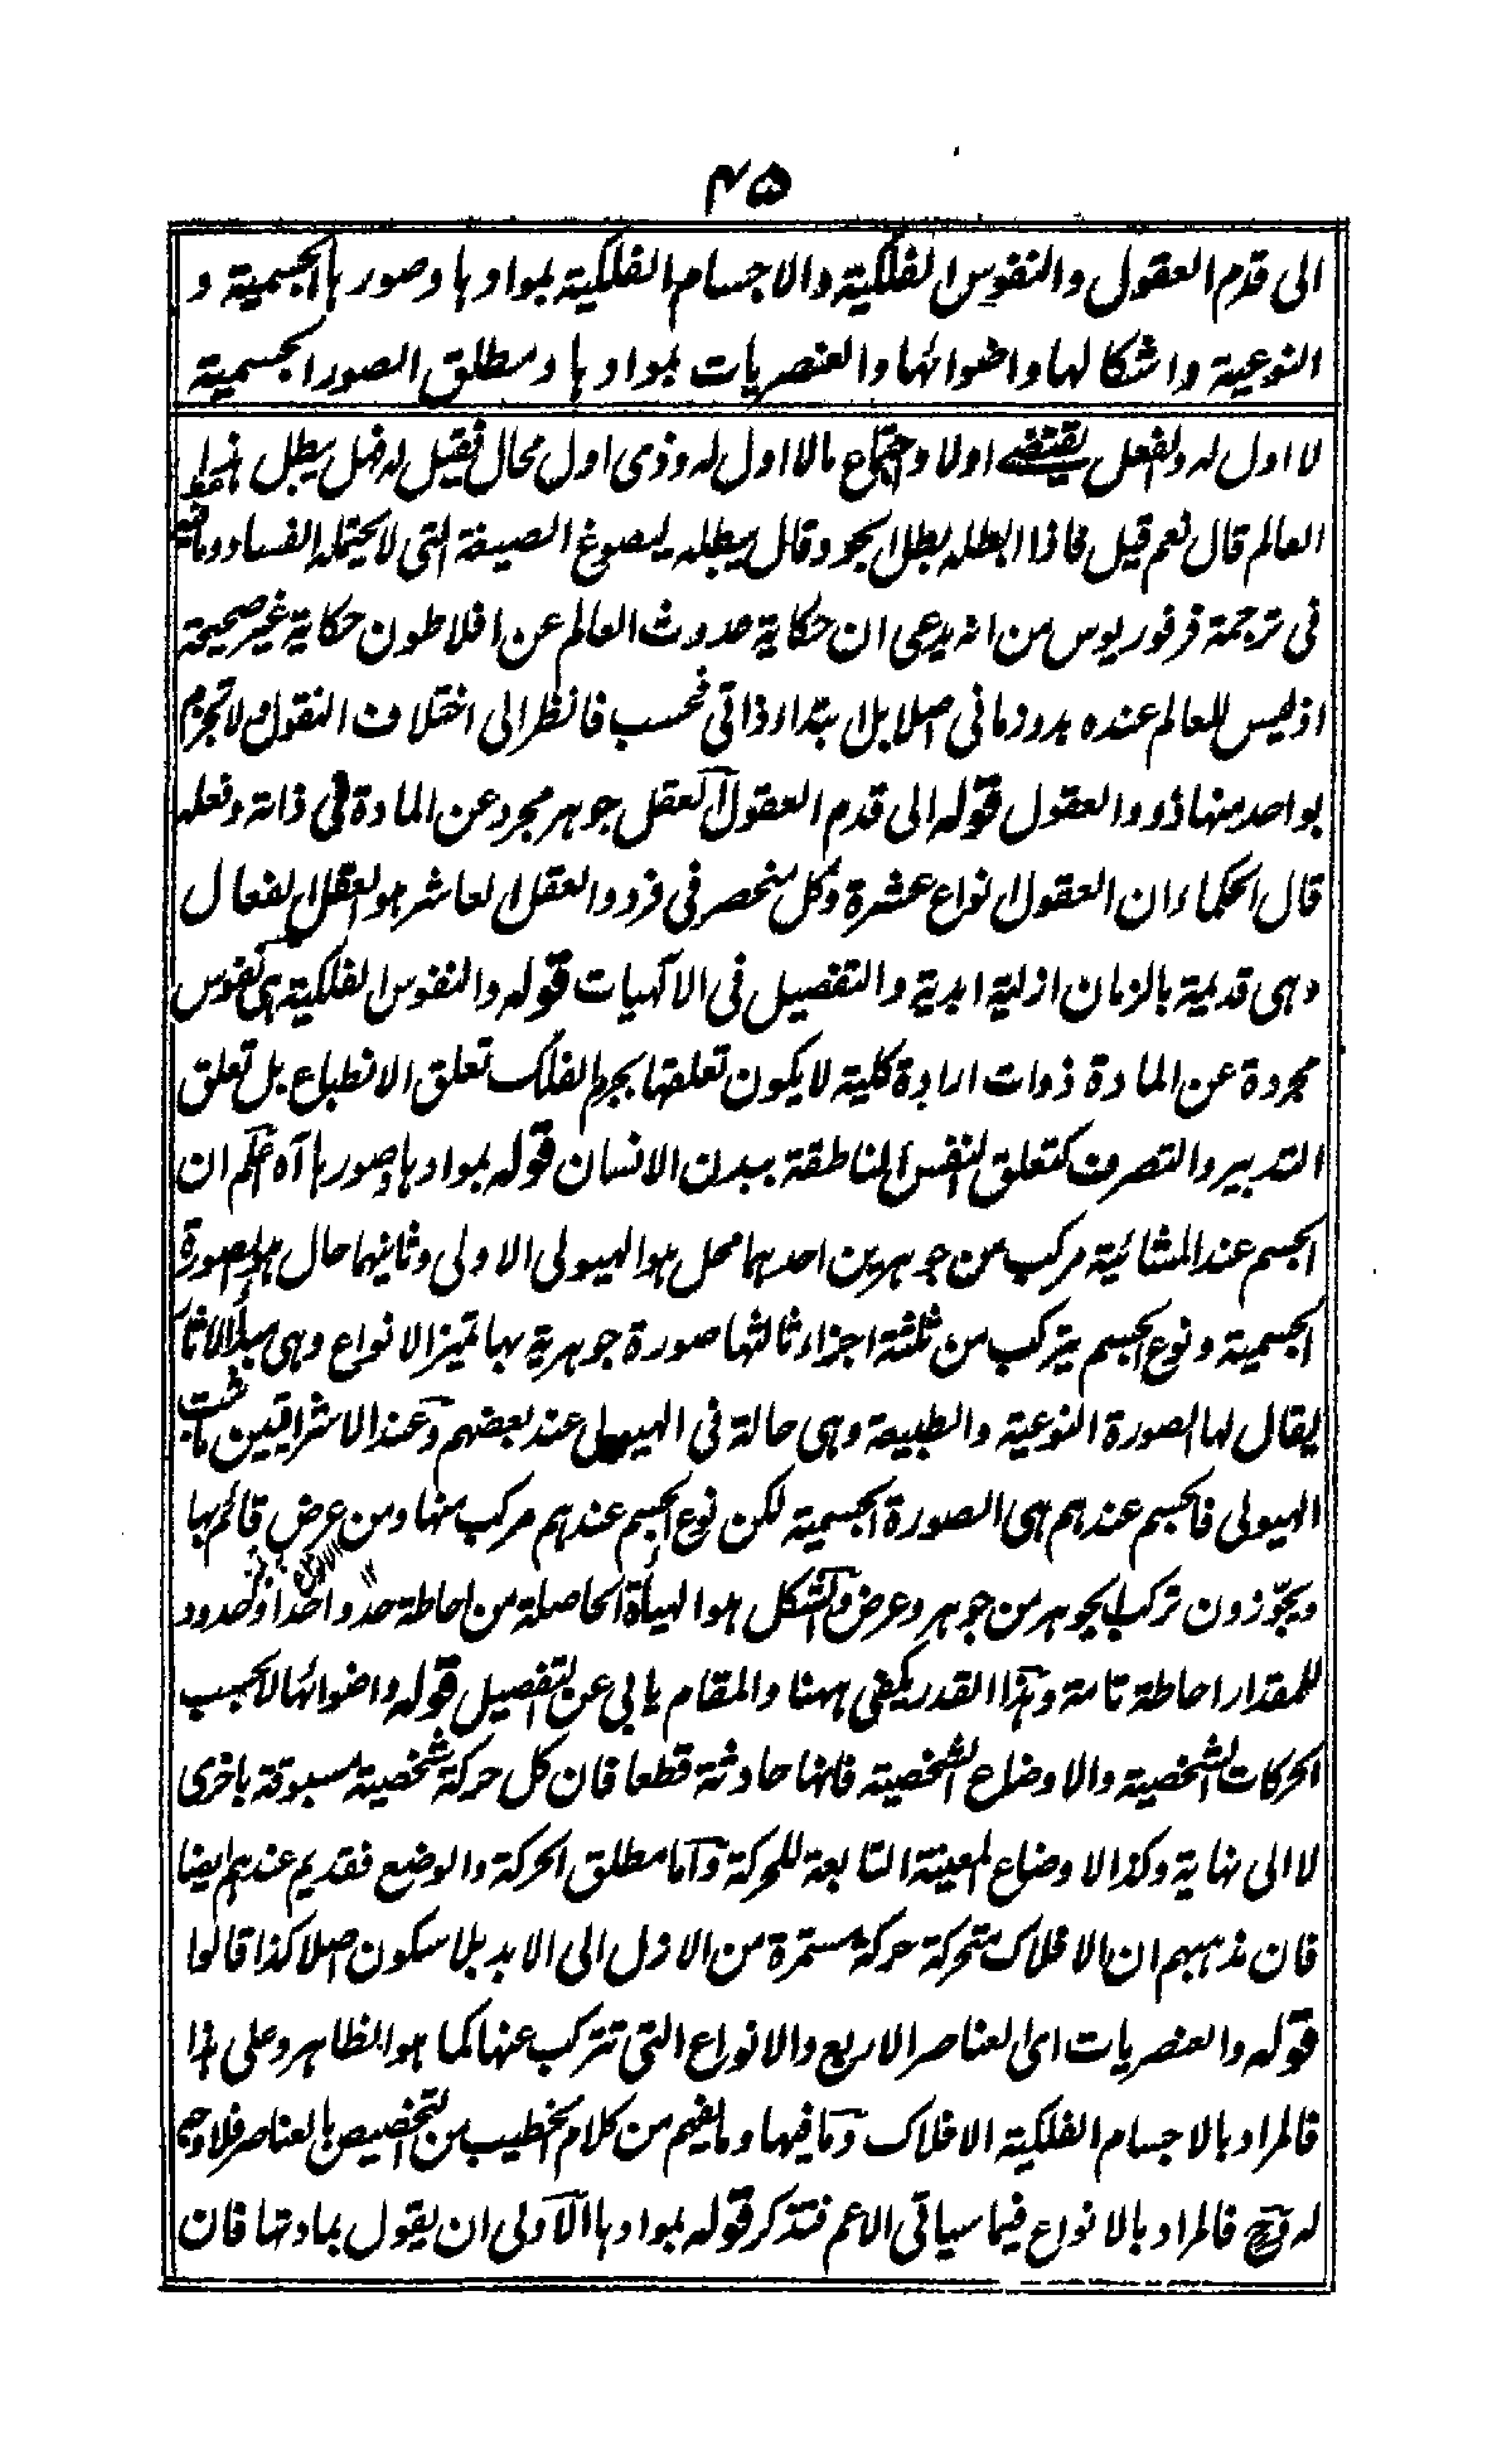 ۴۵
الى قدم العقول والنفوس الفلكية والاجسام الفلكية بموادها وصورها الجسمية و
النوعية واشكالها واضوائها والعنصريات بموادها ومطلق الصور الجسمية
لا اول له والفعل يقتضى اولا واجتماع ما لا اول له وذى اول محال فقيل له فهل يبطل هذا
العالم قال نعم قيل فاذا ابطله بطل الجود قال يبطله ليصوغ الصيغة التى لا يحتمل الفساد وما فيه
فى ترجمة فرفوريوس من انه يدعى ان حكاية حدوث العالم عن افلاطون حكاية غير صحيحة
اذ ليس للعالم عنده بدو زمانى اصلا بل ابتداء ذاتى فحسب فانظر الى اختلاف النقول ولا تجزم
بواحد منها ذووا العقول قوله الى قدم العقول آه العقل جوهر مجرد عن المادة فى ذاته وفعله
قال الحكماء ان العقول انواع عشرة وكل منحصر فى فرد والعقل العاشر هو العقل الفعال
وهى قديمة بالزمان ازلية ابدية والتفصيل فى الآلهيات قوله والنفوس الفلكية هى نفوس
مجردة عن المادة ذوات ارادة كلية لا يكون تعلقها بجرم الفلك تعلق الانطباع بل تعلق
التدبير والتصرف كتعلق النفس الناطقة ببدن الانسان قوله بموادها وصورها آه اعلم ان
الجسم عند المشائية مركب من جوهرين احدهما محل هو الهيولى الاولى وثانيهما حال هو الصورة
الجسمية ونوع الجسم يتركب من ثلثة اجزاء ثالثها صورة جوهرية بها تميز الانواع وهى مبدأ الآثار
يقال لها الصورة النوعية والطبيعة وهى حالة فى الهيولى عند بعضهم وعند الاشراقيين ما ثبت
الهيولى فالجسم عندهم هى الصورة الجسمية لكن نوع الجسم عندهم مركب منها ومن عرض قائم بها
ويجوّزون تركب الجوهر من جوهر وعرض والشكل هو الهيأة الحاصلة من احاطة حد واحد او حدود
للمقدار احاطة تامة وهذا القدر يكفى ههنا والمقام يابى عن التفصيل قوله واضوائها لا بحسب
الحركات الشخصية والاوضاع الشخصية فانها حادثة قطعا فان كل حركة شخصية مسبوقة باخرى
لا الى نهاية وكذا الاوضاع المعينة التابعة للحركة واما مطلق الحركة والوضع فقديم عندهم ايضا
فان مذهبهم ان الافلاك متحركة حركة مستمرة من الازل الى الابد بلا سكون اصلا كذا قالوا
قوله والعنصريات اى العناصر الاربع والانواع التى تتركب عنها كما هو الظاهر وعلى هذا
فالمراد بالاجسام الفلكية الافلاك وما فيها وما يفهم من كلام الخطيب من التخصيص بالعناصر فلا وجه
له وح فالمراد بالانواع فيما سياتى الاعم فتذكر قوله بموادها الاولى ان يقول بمادتها فان